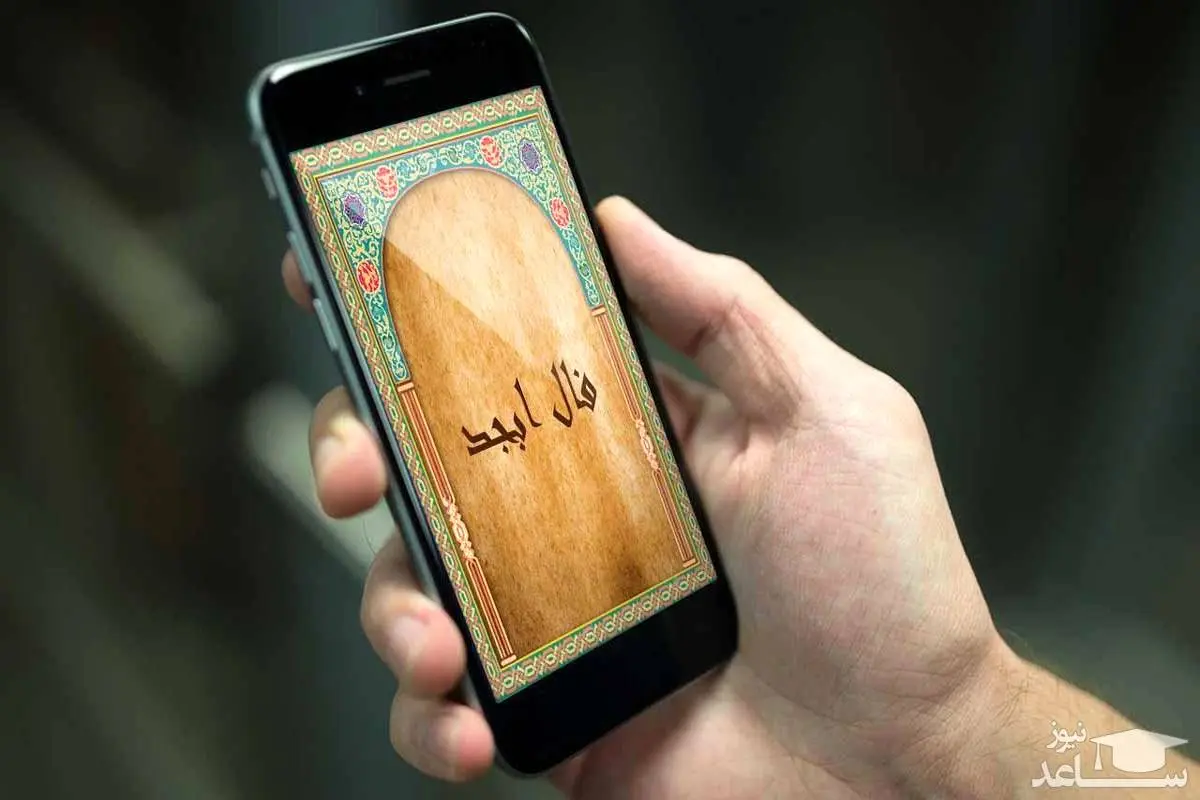 فال ابجد
نیوز
ساعد